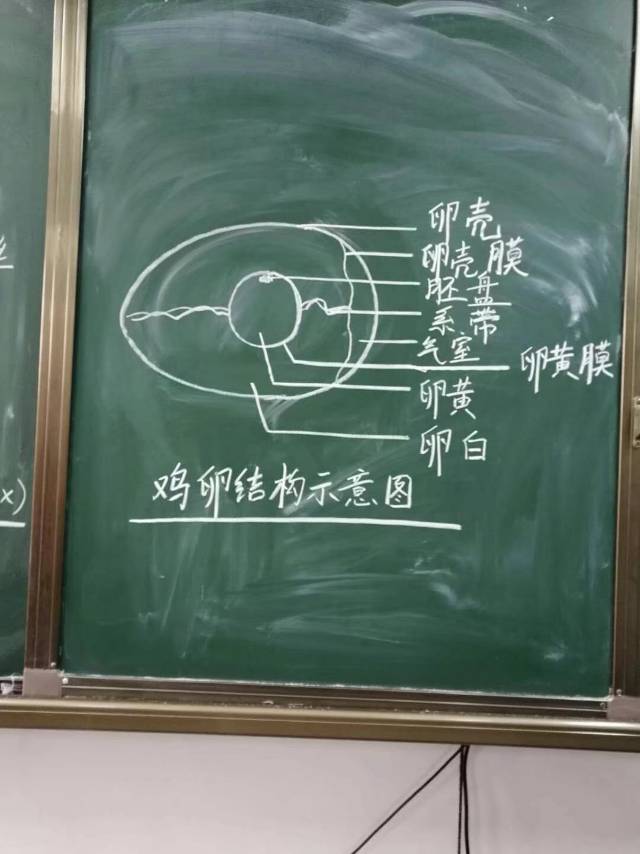 丝
x)
卵壳
卵壳膜
胚盘
系带
气室
卵黄膜
卵黄
卵白
鸡卵结构示意图